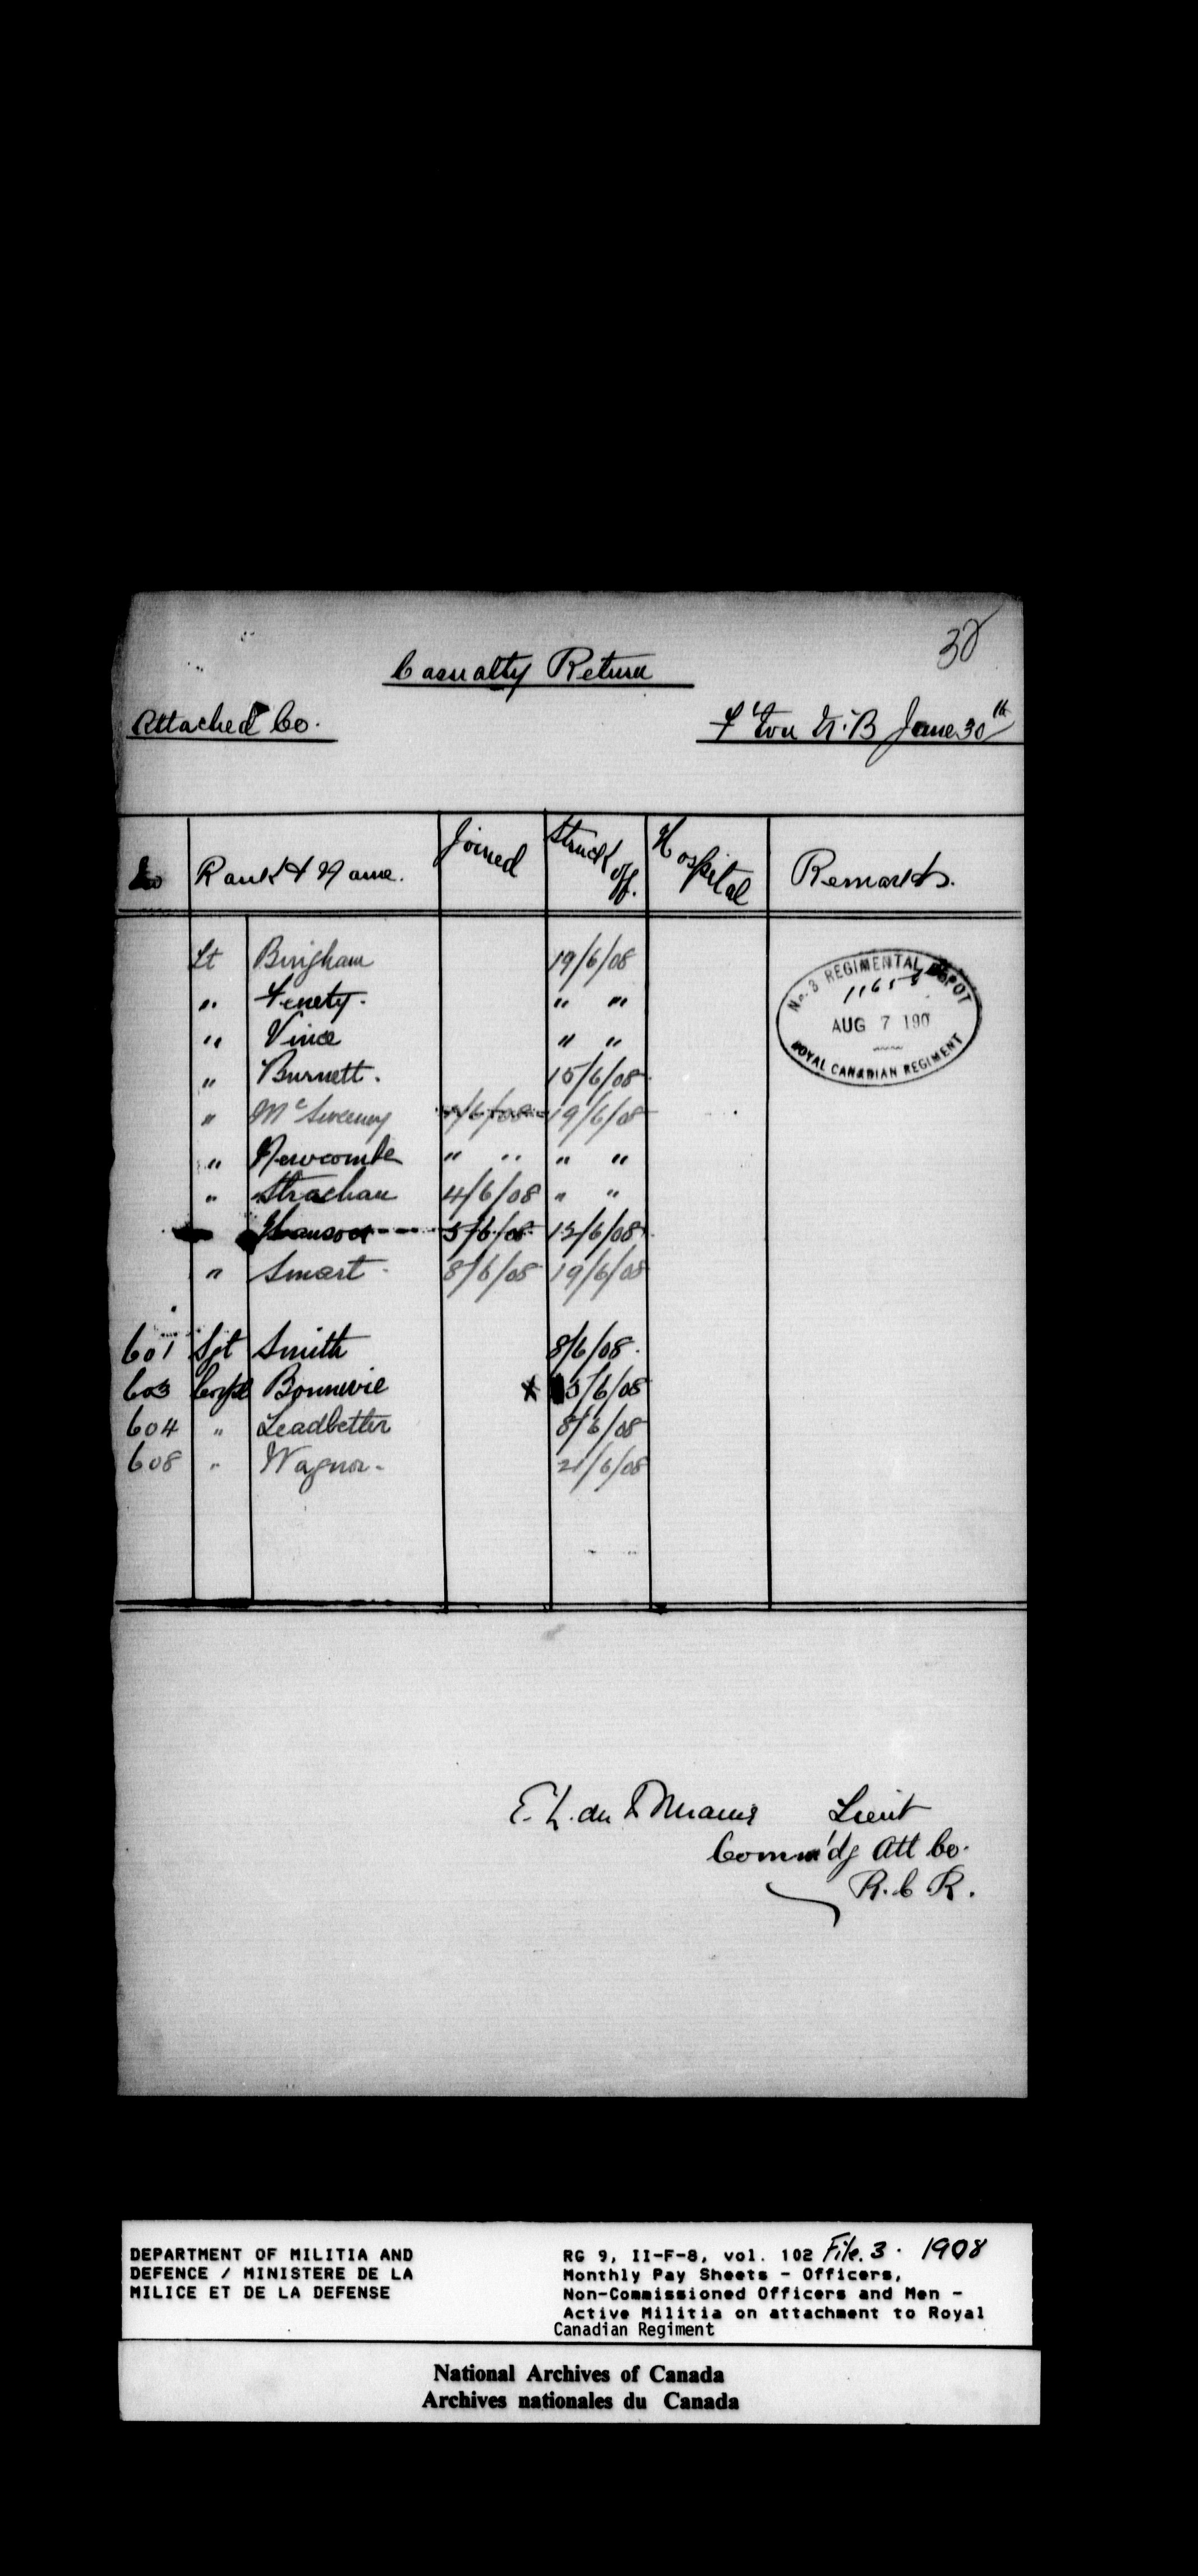 38
Casualty Return
Attached Co.
F'ton N.B June 30th
No Rank & Name. Joined Struck off. Hospital Remarks.
Lt Bingham 19/6/08
" Fenety. " "
" Vince " "
" Burnett. 15/6/08
" McSweeney /6/08 19/6/08
" Newcombe " " " "
" Strachan 4/6/08 " "
5/6/08 12/6/08
" Smart 8/6/08 19/6/08
601 Sgt Smith 8/6/08.
603 Corpl Bonnevie x 15/6/08
604 " Leadbetter 8/6/08
608 " Wagner. 21/6/08
No. 3 REGIMENTAL DEPOT
AUG 7 190
ROYAL CANADIAN REGIMENT
E. L. du Lieut
Comm'dg Att Co.
R. C R.
DEPARTMENT OF MILITIA AND
DEFENCE / MINISTERE DE LA
MILICE ET DE LA DEFENSE
RG 9, II-F-8, vol. 102 File. 3. 1908
Monthly Pay Sheets - Officers,
Non-Commissioned Officers and Men -
Active Militia on attachment to Royal
Canadian Regiment
National Archives of Canada
Archives nationales du Canada